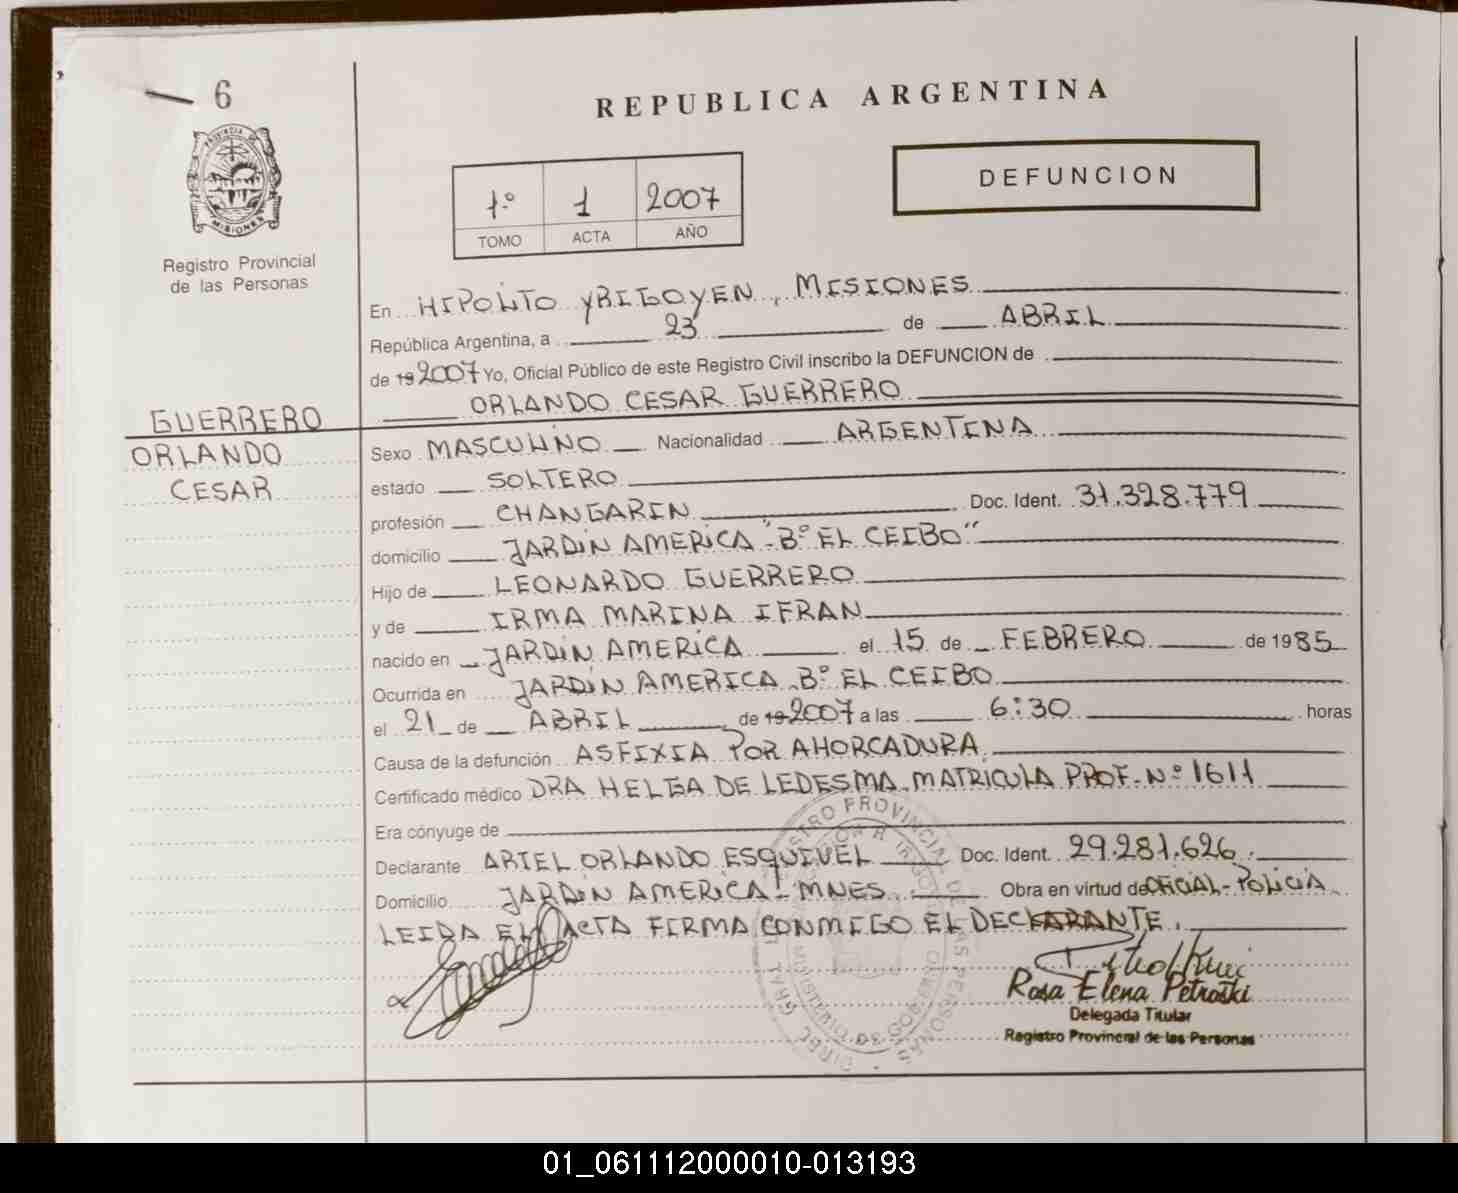 6
REPUBLICA ARGENTINA
PROVINCIA DE
MISIONES
Registro Provincial
de las Personas
DEFUNCION
1º 1 2007
TOMO ACTA AÑO
En HIPOLITO YRIGOYEN, MISIONES
República Argentina, a 23 de ABRIL
de 19 2007 Yo, Oficial Público de este Registro Civil inscribo la DEFUNCION de
ORLANDO CESAR GUERRERO
GUERRERO
ORLANDO
CESAR
Sexo MASCULINO Nacionalidad ARGENTINA
estado SOLTERO
profesión CHANGARIN Doc. Ident. 31.328.779
domicilio JARDIN AMERICA - "Bº EL CEIBO"
Hijo de LEONARDO GUERRERO
y de IRMA MARINA IFRAN
nacido en JARDIN AMERICA el 15 de FEBRERO de 1985
Ocurrida en JARDIN AMERICA Bº EL CEIBO
el 21 de ABRIL de 19 2007 a las 6:30 horas
Causa de la defunción ASFIXIA POR AHORCADURA
Certificado médico DRA HELGA DE LEDESMA. MATRICULA PROF. Nº 1611
Era cónyuge de
Declarante ARIEL ORLANDO ESQUIVEL Doc. Ident. 29.281.626.
Domicilio JARDIN AMERICA - MNES. Obra en virtud de OFICIAL - POLICIA
LEIDA EL ACTA FIRMA CONMIGO EL DECLARANTE.
Rosa Elena Petroski
Delegada Titular
Registro Provincial de las Personas
01_061112000010-013193